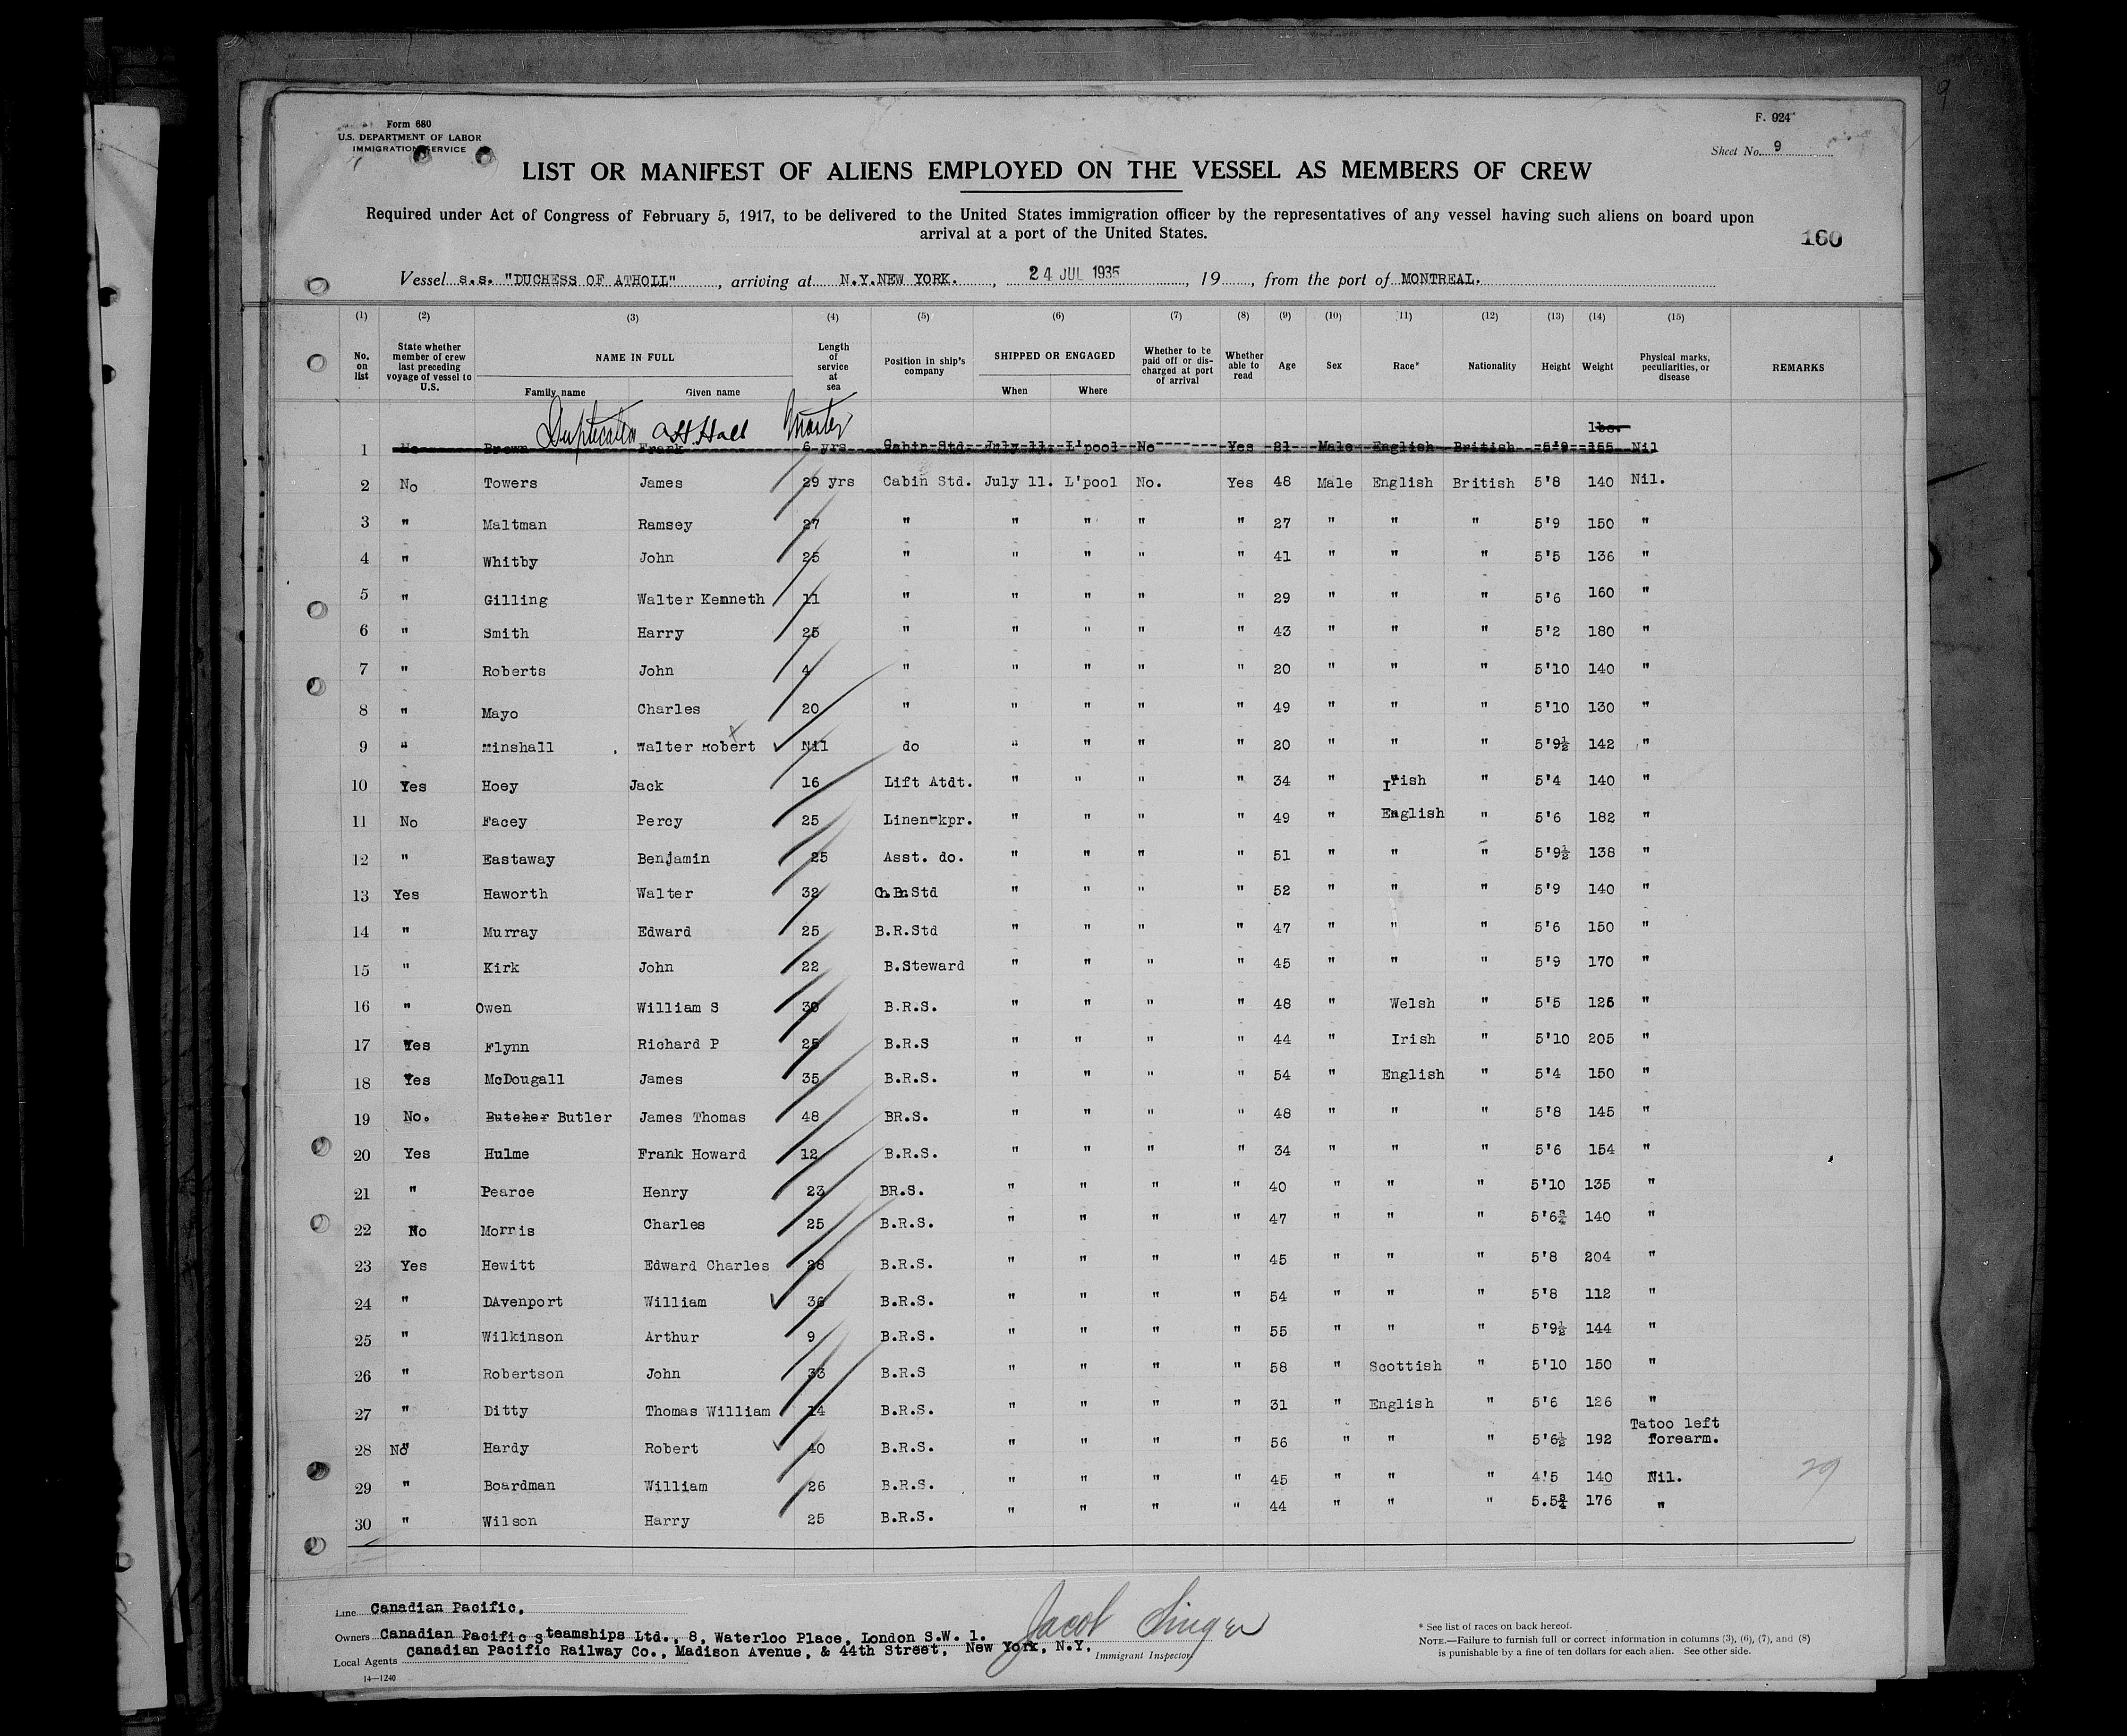 9
Form 680
U.S. DEPARTMENT OF LABOR
IMMIGRATION SERVICE
F. 924
Sheet No. 9
LIST OR MANIFEST OF ALIENS EMPLOYED ON THE VESSEL AS MEMBERS OF CREW
Required under Act of Congress of February 5, 1917, to be delivered to the United States immigration officer by the representatives of any vessel having such aliens on board upon
arrival at a port of the United States.
160
Vessel s.s. "DUCHESS OF ATHOLL", arriving at N.Y.NEW YORK., 24 JUL 1935, 19, from the port of MONTREAL.
(1) (2) (3) (4) (5) (6) (7) (8) (9) (10) (11) (12) (13) (14) (15)
No. on list State whether member of crew last preceding voyage of vessel to U.S. NAME IN FULL Length of service at sea Position in ship's company SHIPPED OR ENGAGED Whether to be paid off or discharged at port of arrival Whether able to read Age Sex Race* Nationality Height Weight Physical marks, peculiarities, or disease REMARKS
Family name Given name When Where
Duplicated A.H.Hall Master
lbs.
1 No Brown Frank 6 yrs Cabin Std. July 11. L'pool No Yes 21 Male English British 5'9 155 Nil
2 No Towers James 29 yrs Cabin Std. July 11. L'pool No. Yes 48 Male English British 5'8 140 Nil.
3 " Maltman Ramsey 27 " " " " " 27 " " " 5'9 150 "
4 " Whitby John 25 " " " " " 41 " " " 5'5 136 "
5 " Gilling Walter Kenneth 11 " " " " " 29 " " " 5'6 160 "
6 " Smith Harry 25 " " " " " 43 " " " 5'2 180 "
7 " Roberts John 4 " " " " " 20 " " " 5'10 140 "
8 " Mayo Charles 20 " " " " " 49 " " " 5'10 130 "
9 " Minshall Walter Robert Nil do " " " " 20 " " " 5'9½ 142 "
10 Yes Hoey Jack 16 Lift Atdt. " " " " 34 " Irish " 5'4 140 "
11 No Facey Percy 25 Linen-kpr. " " " " 49 " English " 5'6 182 "
12 " Eastaway Benjamin 25 Asst. do. " " " " 51 " " " 5'9½ 138 "
13 Yes Haworth Walter 32 Ch.Bn.Std " " " " 52 " " " 5'9 140 "
14 " Murray Edward 25 B.R.Std " " " " 47 " " " 5'6 150 "
15 " Kirk John 22 B.Steward " " " " 45 " " " 5'9 170 "
16 " Owen William S 30 B.R.S. " " " " 48 " Welsh " 5'5 126 "
17 Yes Flynn Richard P 25 B.R.S " " " " 44 " Irish " 5'10 205 "
18 Yes McDougall James 35 B.R.S. " " " " 54 " English " 5'4 150 "
19 No. Butcher Butler James Thomas 48 BR.S. " " " " 48 " " " 5'8 145 "
20 Yes Hulme Frank Howard 12 B.R.S. " " " " 34 " " " 5'6 154 "
21 " Pearce Henry 23 BR.S. " " " " 40 " " " 5'10 135 "
22 No Morris Charles 25 B.R.S. " " " " 47 " " " 5'6¾ 140 "
23 Yes Hewitt Edward Charles 28 B.R.S. " " " " 45 " " " 5'8 204 "
24 " DAvenport William 36 B.R.S. " " " " 54 " " " 5'8 112 "
25 " Wilkinson Arthur 9 B.R.S. " " " " 55 " " " 5'9½ 144 "
26 " Robertson John 33 B.R.S " " " " 58 " Scottish " 5'10 150 "
27 " Ditty Thomas William 14 B.R.S. " " " " 31 " English " 5'6 126 "
28 No" Hardy Robert 40 B.R.S. " " " " 56 " " " 5'6½ 192 Tatoo left forearm.
29 " Boardman William 26 B.R.S. " " " " 45 " " " 4'5 140 Nil.
29
30 " Wilson Harry 25 B.R.S. " " " " 44 " " " 5.5¾ 176 "
Line Canadian Pacific.
Owners Canadian Pacific Steamships Ltd., 8, Waterloo Place, London S.W. 1.
Local Agents Canadian Pacific Railway Co., Madison Avenue, & 44th Street, New York, N.Y.
Jacob Singer
Immigrant Inspector.
* See list of races on back hereof.
NOTE.—Failure to furnish full or correct information in columns (3), (6), (7), and (8)
is punishable by a fine of ten dollars for each alien. See other side.
14—1240